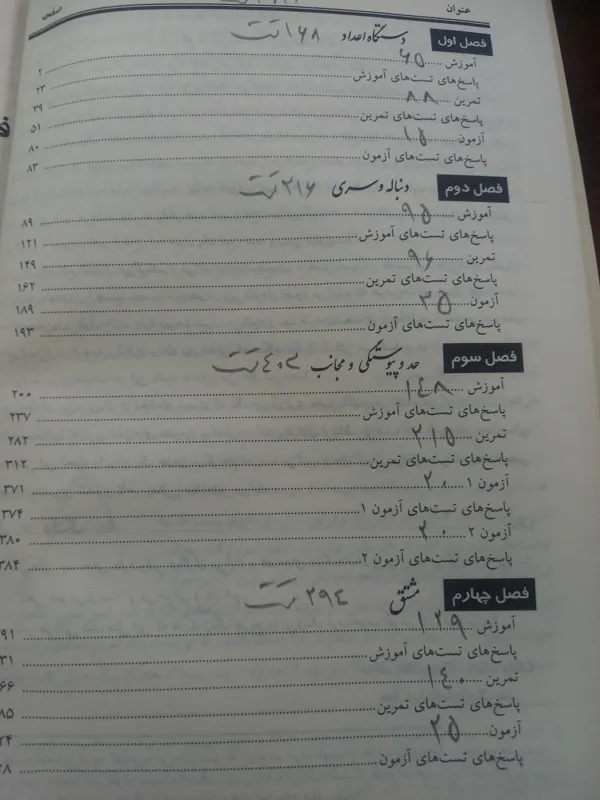 عنوان صفحه
فصل اول دستگاه اعداد ۱۶۸ تست
آموزش ۶۵ ۲
پاسخ‌های تست‌های آموزش ۲۳
تمرین ۸۸ ۳۹
پاسخ‌های تست‌های تمرین ۵۱
آزمون ۱۵ ۸۰
پاسخ‌های تست‌های آزمون ۸۳
فصل دوم دنباله و سری ۲۱۶ تست
آموزش ۹۵ ۸۹
پاسخ‌های تست‌های آموزش ۱۲۱
تمرین ۹۶ ۱۴۹
پاسخ‌های تست‌های تمرین ۱۶۲
آزمون ۲۵ ۱۸۹
پاسخ‌های تست‌های آزمون ۱۹۳
فصل سوم حد و پیوستگی و مجانب ۴۰۳ تست
آموزش ۱۴۸ ۲۰۰
پاسخ‌های تست‌های آموزش ۲۳۷
تمرین ۲۱۵ ۲۸۲
پاسخ‌های تست‌های تمرین ۳۱۲
آزمون ۱ ۲۰ ۳۷۱
پاسخ‌های تست‌های آزمون ۱ ۳۷۴
آزمون ۲ ۲۰ ۳۸۰
پاسخ‌های تست‌های آزمون ۲ ۳۸۴
فصل چهارم مشتق ۲۹۴ تست
آموزش ۱۲۹ ۹۱
پاسخ‌های تست‌های آموزش ۳۱
تمرین ۱۴۰ ۶۶
پاسخ‌های تست‌های تمرین ۸۵
آزمون ۲۵ ۲۴
پاسخ‌های تست‌های آزمون ۲۸